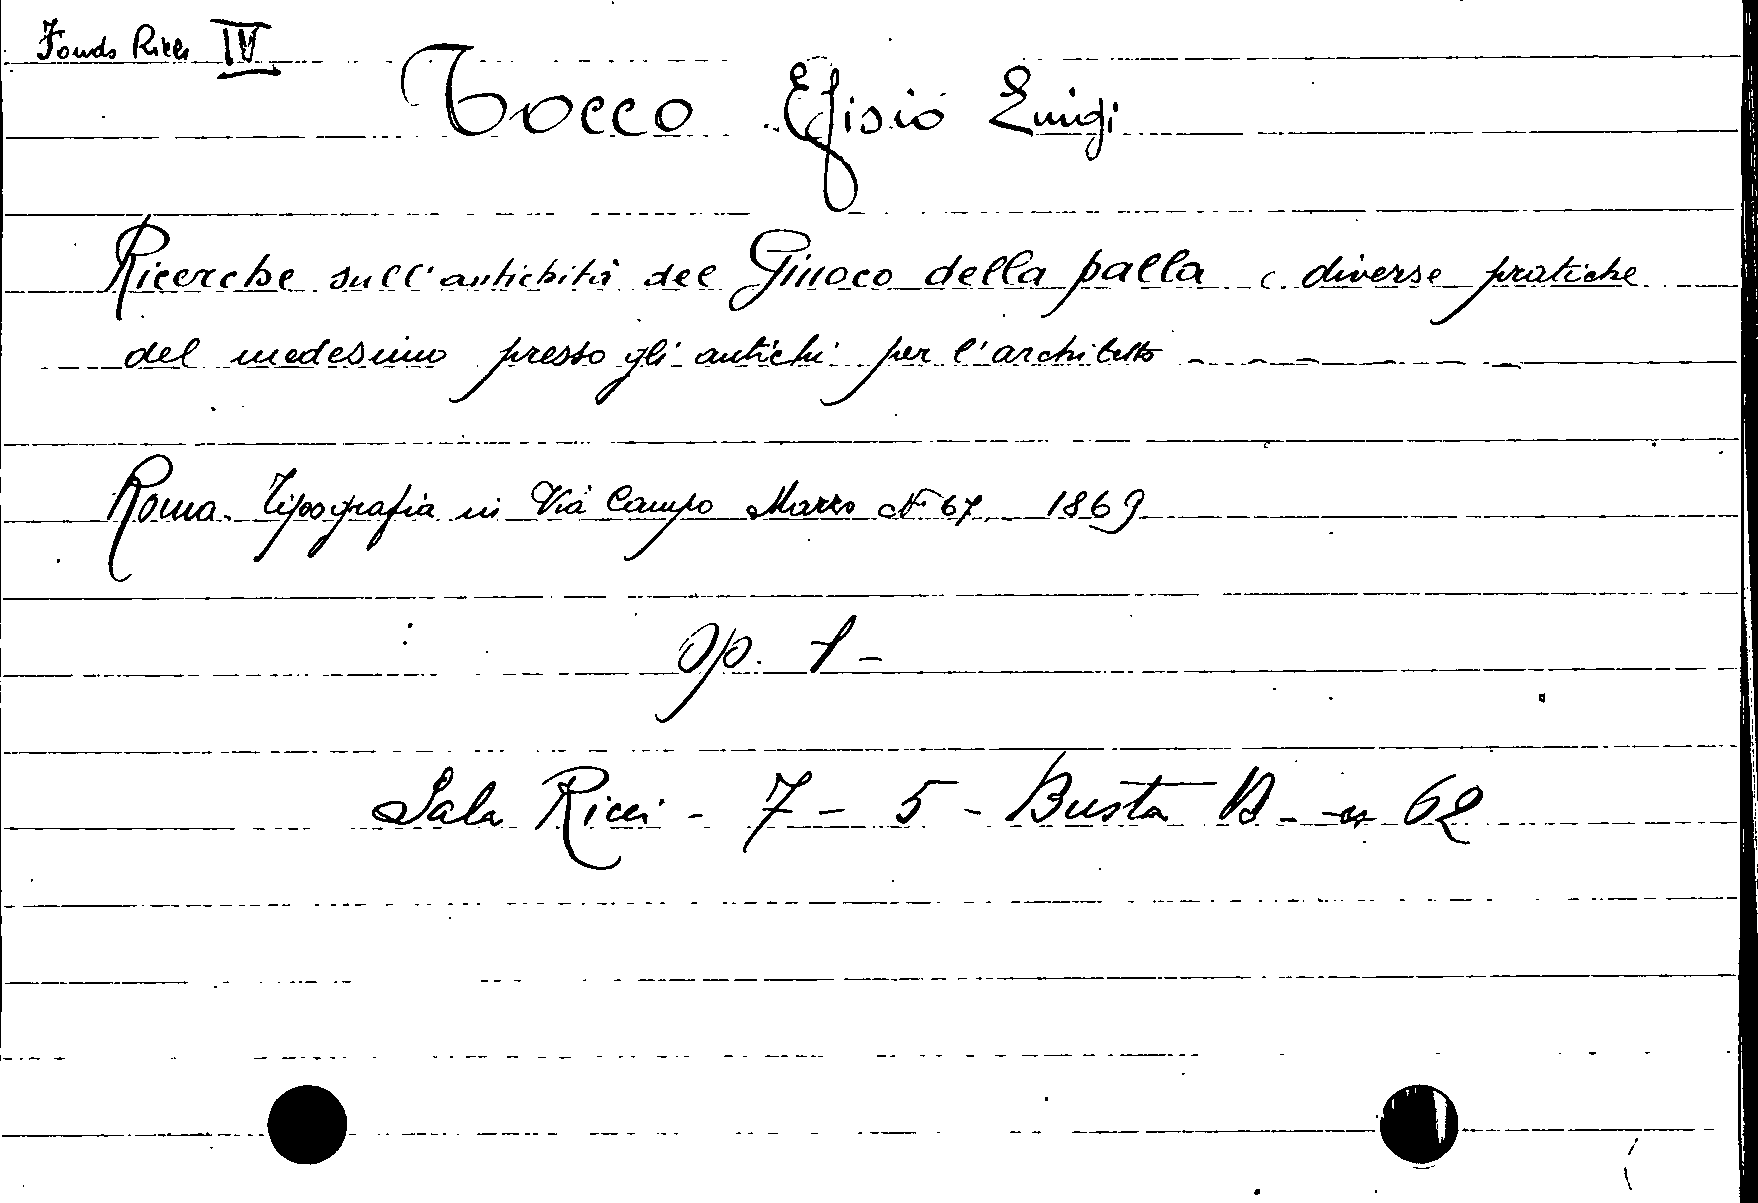 Fondo Ricci IV
Tocco Efisio Luigi
Ricerche sull'antichità del Giuoco della palla e diverse pratiche
del medesimo presso gli antichi per l'architetto - - - - - - -
Roma. Tipografia in Via Campo Marzo N° 67 1869
Op. 1 -
Sala Ricci - 7 - 5 - Busta B - n 62